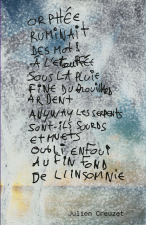 ORPHÉE
RUMINAIT
DES MOTS
À L'ÉTOUFFÉE
SOUS LA PLUIE
FINE DU BROUILLARD
ARDENT
ANYWAY LES SERPENTS
SONT-ILS SOURDS
ET MUETS
OUBLI ENFOUI
AU FIN FOND
DE L'INSOMNIE
Julien Creuzet